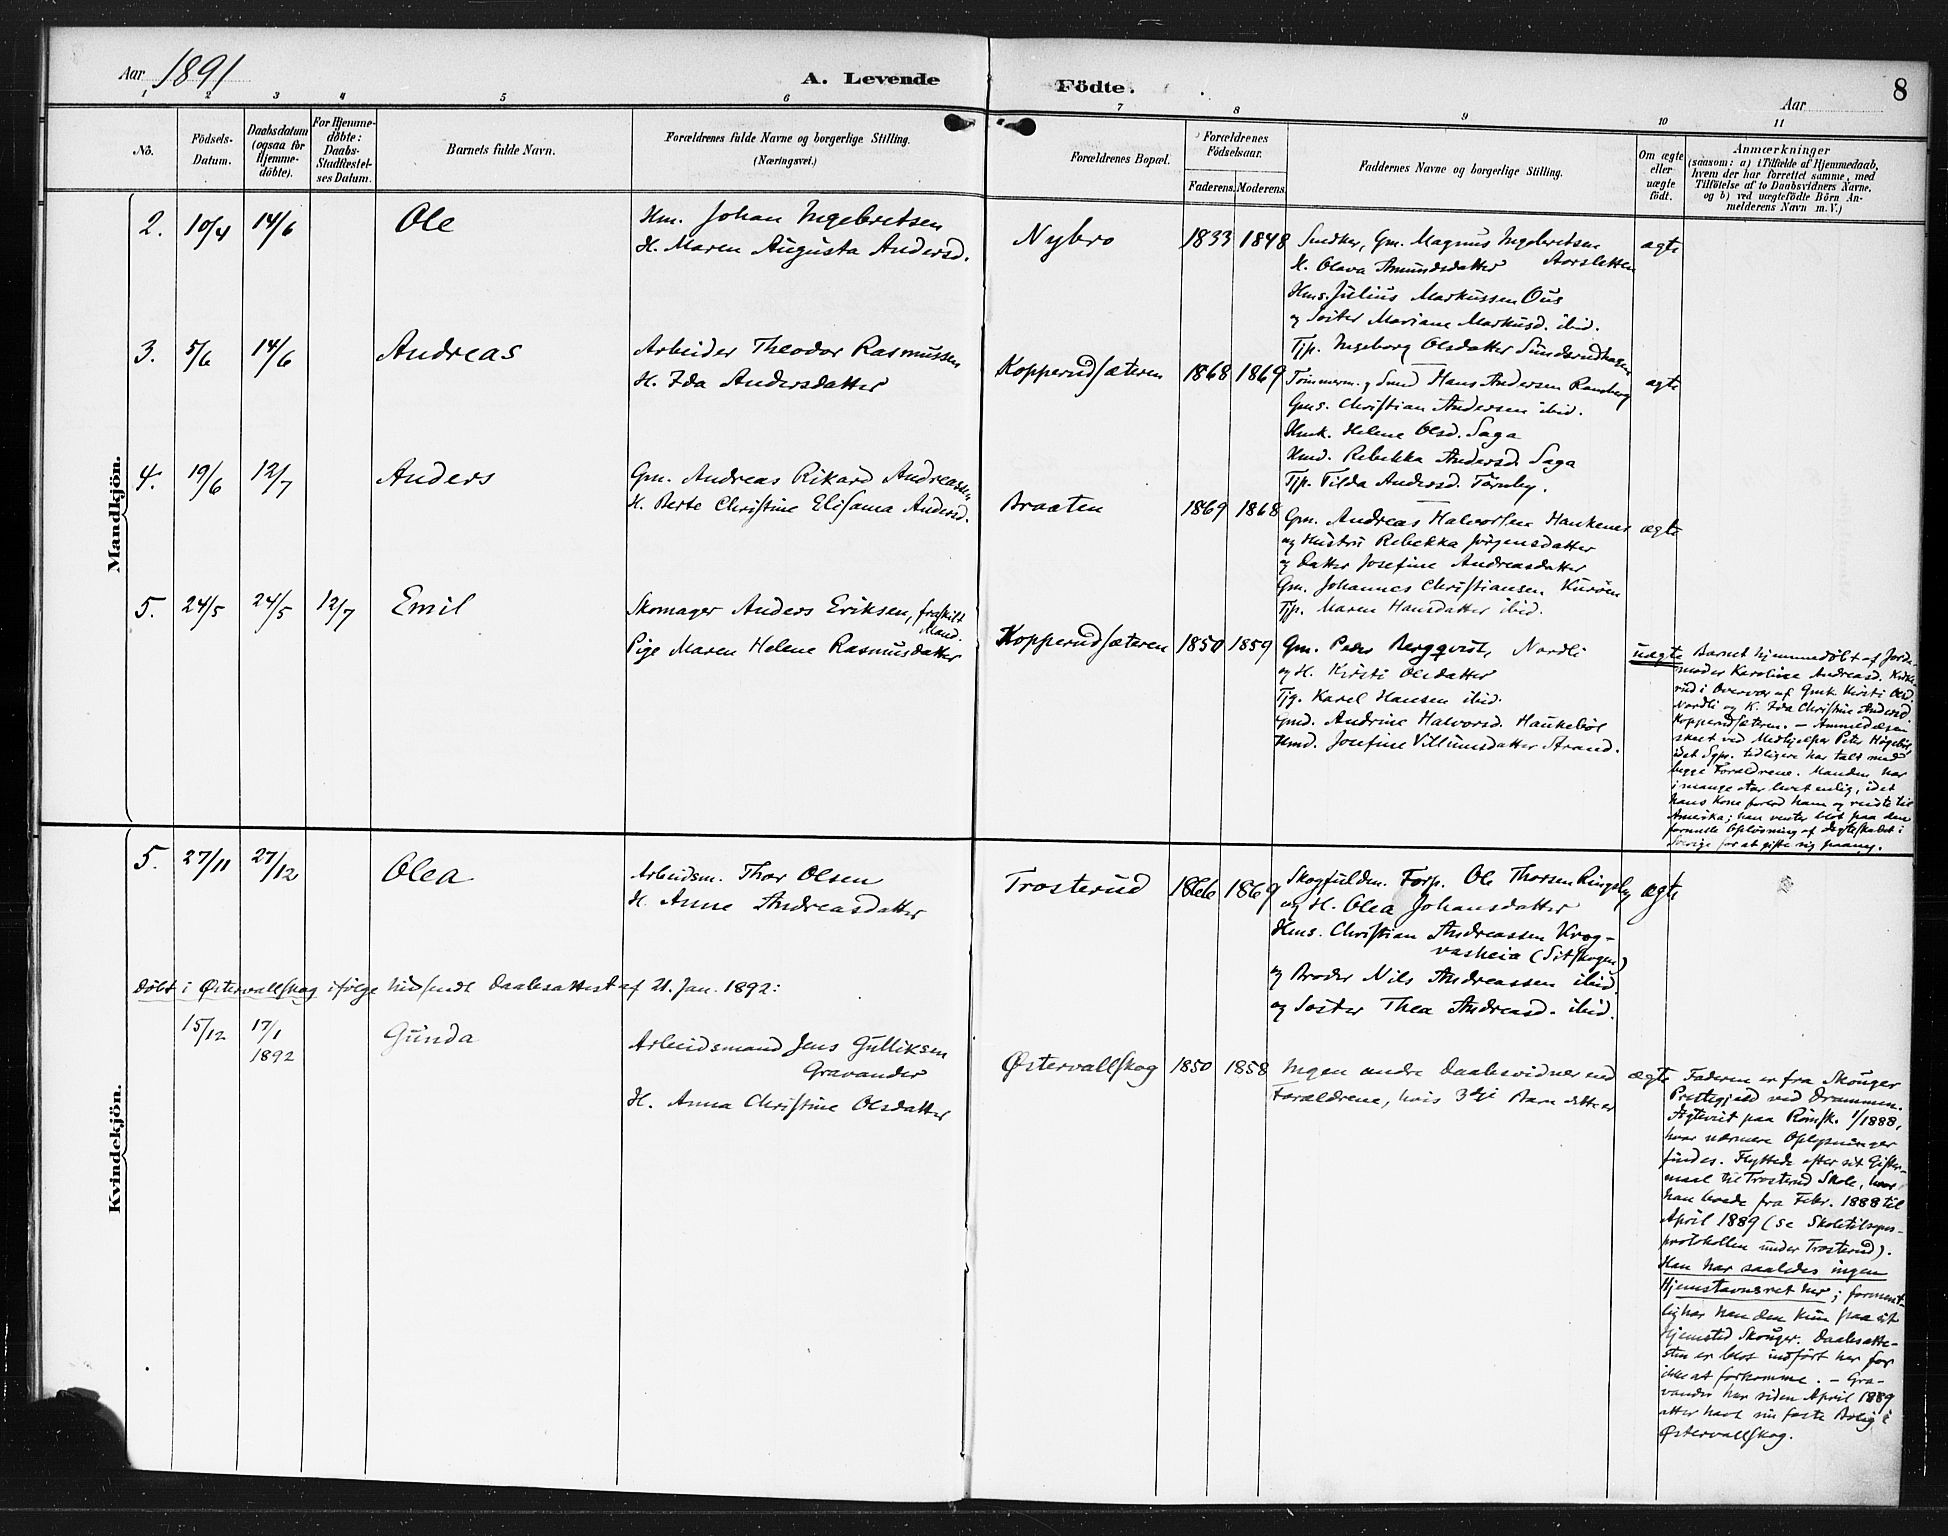 Aar 1891
A. Levende Födte.
Aar
8
1 2 3 4 5 6 7 8 9 10 11
No.
Födsels-Datum.
Daabsdatum (ogsaa för Hjemme-döbte).
For Hjemme-döbte: Daabs-Stadfæstel-ses Datum.
Barnets fulde Navn.
Forældrenes fulde Navne og borgerlige Stilling. (Næringsvei.)
Forældrenes Bopæl.
Forældrenes Födselsaar.
Faderens. Moderens.
Faddernes Navne og borgerlige Stilling.
Om ægte eller uægte födt.
Anmærkninger
(saasom: a) i Tilfælde af Hjemmedaab, hvem der har forrettet samme, med Tilföielse af to Daabsvidners Navne. og b) ved uægtefödte Börn An-melderens Navn m. V.)
Mandkjön.
2. 10/4 14/6 Ole
Hm. Johan Ingebretsen
H. Maren Augusta Andersd.
Nybro 1833 1848
Snedker, Gm. Magnus Ingebretsen
H. Olava Amundsdatter Aarsletten
Hms. Julius Markussen Ous
og Søster Mariane Markusd. ibid.
Tjp. Ingeborg Olsdatter Sundsrudhagen
ægte
3. 5/6 14/6 Andreas
Arbeider Theodor Rasmussen
H. Ida Andersdatter
Kopperudsæteren 1868 1869
Tømmerm. og Smed Hans Andersen Ramberg
Gms. Christian Andersen ibid.
Hmk. Helene Olsd. Saga
Hmd. Rebekka Andersd. Saga
Tjp. Tilda Andersd. Tørnby.
ægte
4. 19/6 12/7 Anders
Gm. Andreas Rikard Andreassen
H. Berte Christine Elisama Andersd.
Braaten 1869 1868
Gm. Andreas Halvorsen Hankenes
og Hustru Rebekka Jørgensdatter
og Datter Josefine Andreasdatter
Gm. Johannes Christiansen Kurøen
Tjp. Maren Hansdatter ibid.
ægte
5. 24/5 24/5 12/7 Emil
Skomager Anders Eriksen, fraskilt Mand.
Pige Maren Helene Rasmusdatter
Kopperudsæteren 1850 1859
Gm. Peder Bergqvist, Nordli
og H. Kirsti Olsdatter
Tjg. Karel Hansen ibid.
Gmd. Andrine Halvorsd. Haukebøl
Hmd. Josefine Villumsdatter Strand.
uægte
Barnet hjemmedøbt af Jorde-
moder Karoline Andreasd. Kirke-
rud i Overvær af Gmk. Kirsti Olsd.
Nordli og K. Ida Christine Andersd.
Kopperudsæteren. – Anmeldelsen
skeet ved Medhjelper Peter Høgebøl,
idet Sgpr. tidligere har talt med
begge Forældrene. Manden har
i mange Aar levet enlig, idet
hans Kone forlod ham og reiste til
Amerika; han venter blot paa den
formelle Opløsning af Ægteskabet i
Sverige for at gifte sig paany.
Kvindekjön.
5. 27/11 27/12 Olea
Arbeidsm. Thor Olsen
H. Anne Andreasdatter
Trosterud 1866 1869
Skogfuldm. Forp. Ole Thorsen Ringsby
og H. Olea Johansdatter
Hms. Christian Andreassen Krog-
vasheia (Sitskogen)
og Broder Nils Andreassen ibid.
og Søster Thea Andreasd. ibid.
ægte
Døbt i Østervallskog ifølge hidsendt Daabsattest af 21. Jan. 1892:
15/12 17/1 1892 Gunda
Arbeidsmand Jens Gulliksen
Gravander
H. Anna Christine Olsdatter
Østervallskog 1850 1858
Ingen andre Daabsvidner end
Forældrene, hvis 3die Barn dette er
ægte
Faderen er fra Skouger
Prestegjeld ved Drammen.
Ægteviet paa Rømsk. 1/1888,
hvor nærmere Oplysninger
findes. Flyttede efter sit Gifter-
maal til Trosterud Skole, hvor
han boede fra Febr. 1888 til
April 1889 (se Skoletilsyns-
protokollen under Trosterud).
Han har saaledes ingen
Hjemstavnsret her; forment-
lig har han den kun paa sit
Hjemsted Skouger. Daabsatte-
sten er blot indført her for
ikke at forkomme. – Gra-
vander har siden April 1889
atter havt sin faste Bolig i
Østervallskog.